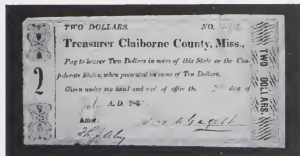 TWO DOLLARS. NO.
Treasurer Claiborne County, Miss.,
Pay to bearer Two Dollars in notes of this State or the Con-
federate States, when presented in sums of Ten Dollars.
Given under my hand and seal of office the day
of A.D. 186
Attest:
2
TWO DOLLARS.